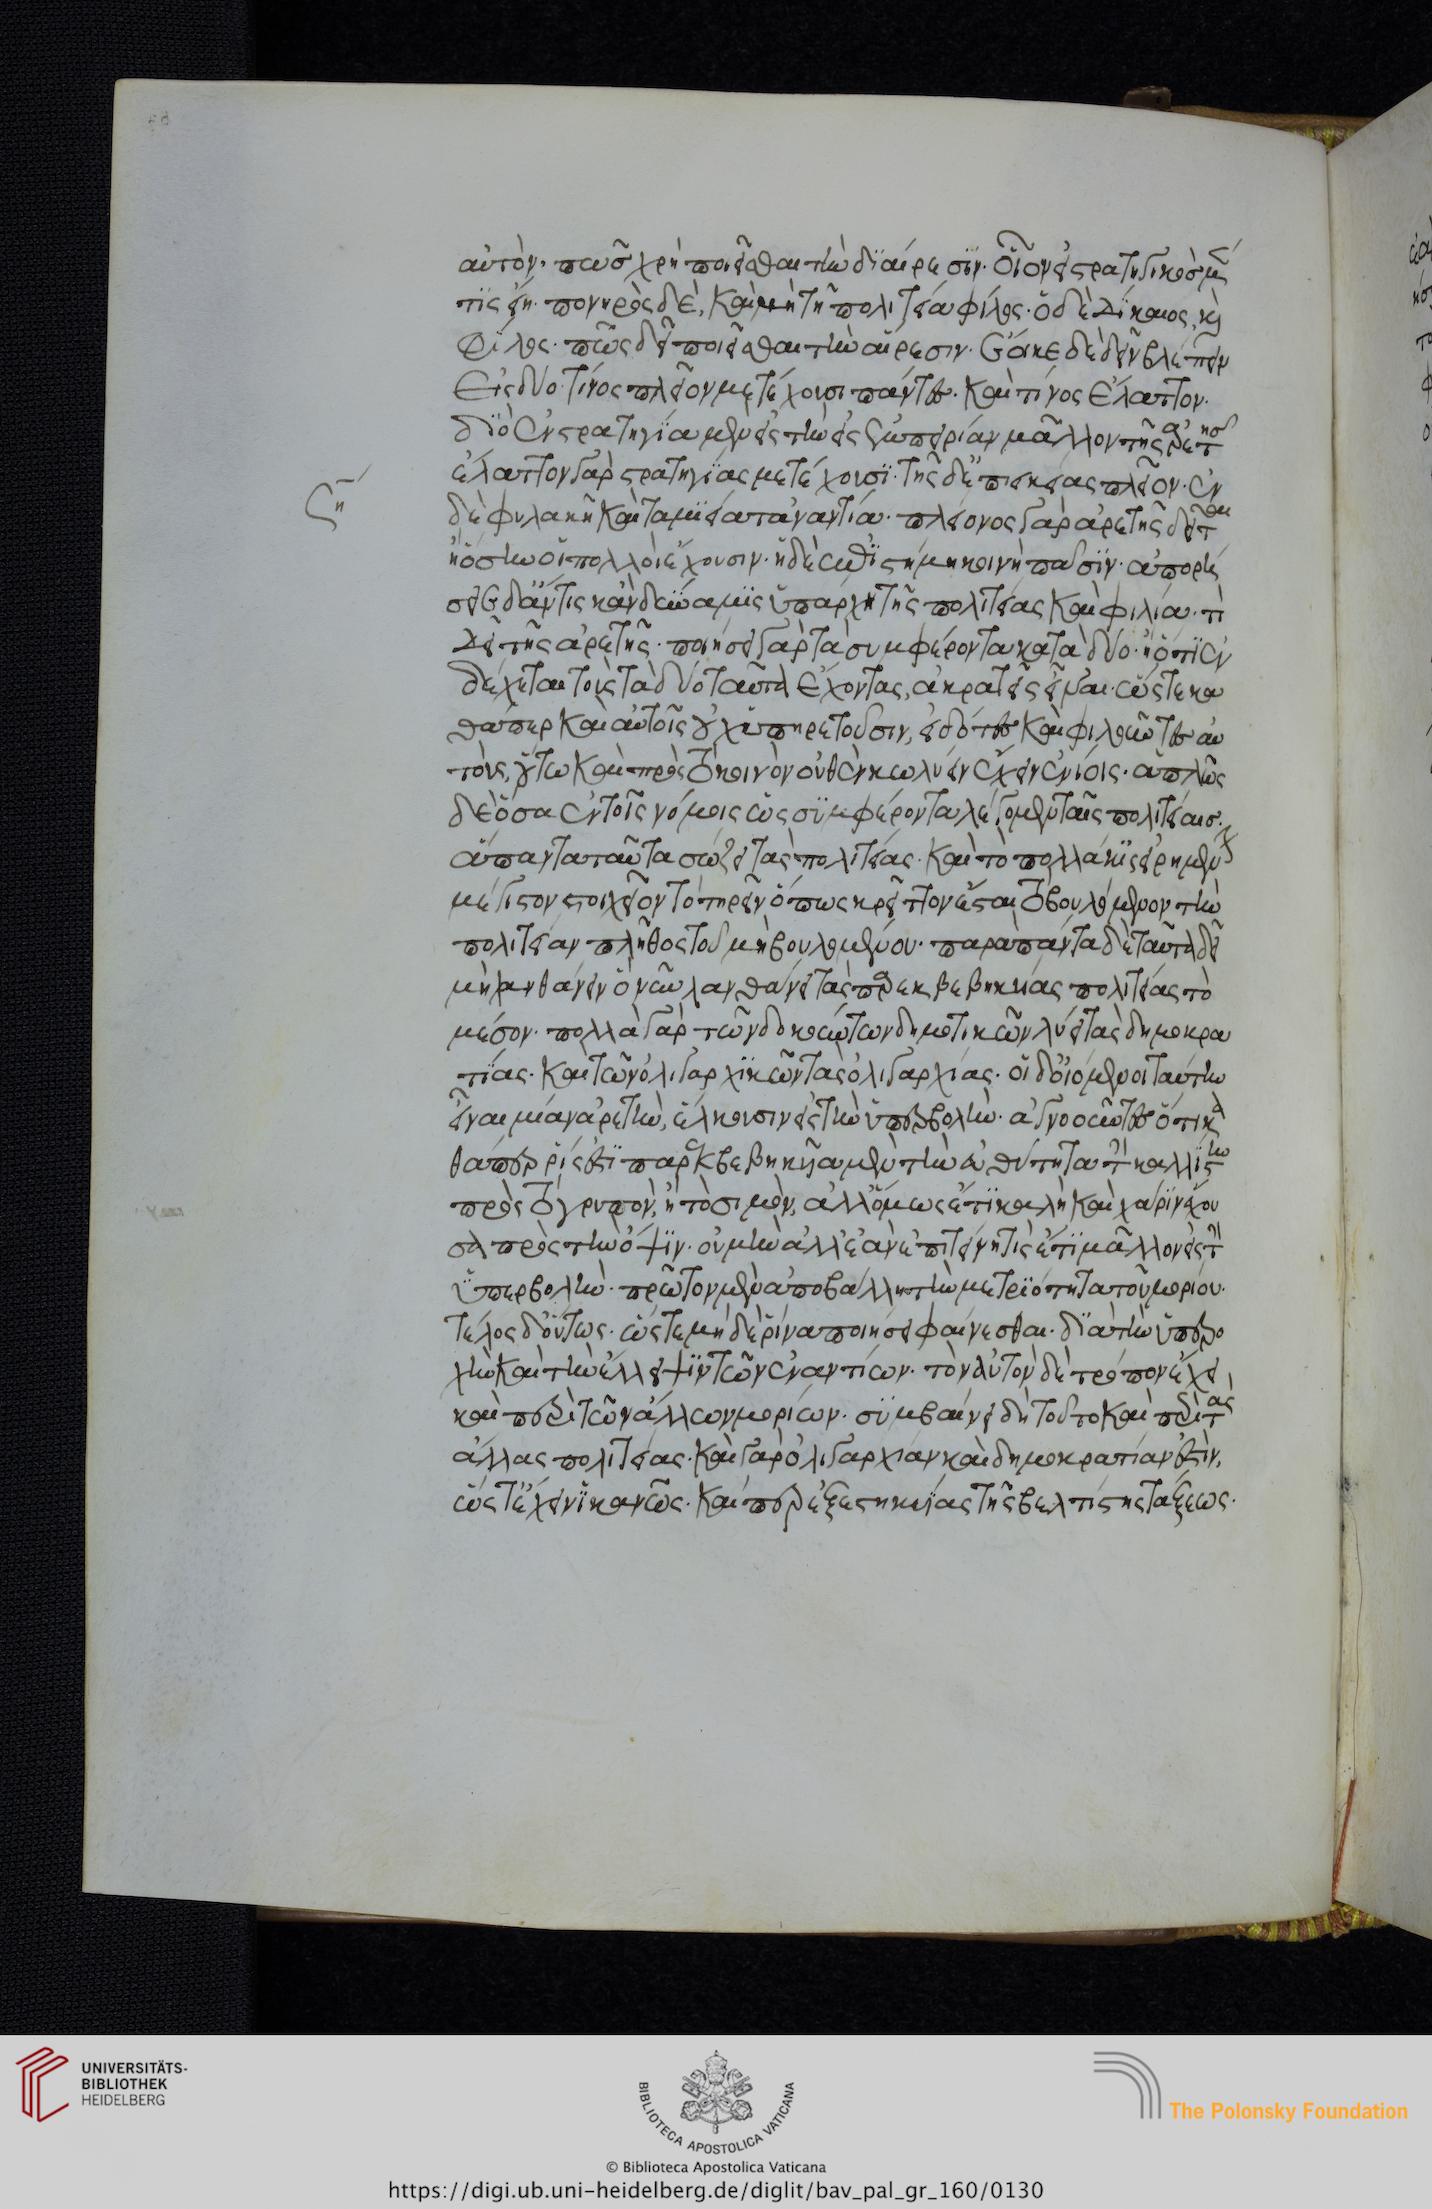 αὐτὸν· πῶς χρὴ ποιεῖσθαι τὴν διαίρεσϊν. οἷον εἰ στρατηγικὸς μέν
τὶς εἴη. πονηρὸς δὲ, καὶ μὴ τῇ πολιτεία φίλος. ὁ δὲ δίκαιος, καὶ
φίλος. πῶς δεῖ ποιεῖσθαι τὴν αἵρεσιν. ἔοικε δὲ δεῖν βλέπειν
εἰς δύο. τίνος πλεῖον μετέχουσι πάντες. καὶ τίνος ἔλαττον.
διὸ ἐν στρατηγία μὲν εἰς τὴν ἐμπειρίαν μᾶλλον τῆς ἀρετῆς
ἔλαττον γὰρ στρατηγίας μετέχουσϊ. τῆς δ' ἐπιεικείας πλεῖον. ἐν
ζη
δὲ φυλακῇ καὶ ταμιεία τἀναντία. πλείονος γὰρ ἀρετῆς δεῖται
ἢ ὅσην οἱ πολλοὶ ἔχουσιν. ἡ δὲ ἐπιστήμη κοινὴ πᾶσϊν. ἀπορή
σειε δ' ἄν τις κἂν δύναμις ὑπάρχῃ τῆς πολιτείας καὶ φιλία. τί
δεῖ τῆς ἀρετῆς. ποιήσει γὰρ τὰ συμφέροντα κατὰ δύο. ἢ ὅτι ἐν
δέχεται τοὺς τὰ δύο ταῦτα ἔχοντας, ἀκρατεῖς εἶναι. ὥστε κα
θάπερ καὶ αὐτοῖς οὐχ ὑπηρετοῦσιν, εἰδότες καὶ φιλοῦντες αὑ
τούς, οὕτω καὶ πρὸς τὸ κοινὸν οὐθὲν κωλύει ἔχειν ἐνίοις. ἁπλῶς
δὲ ὅσα ἐν τοῖς νόμοις ὡς συμφέροντα λέγομεν ταῖς πολιτείαις.
ἅπαντα ταῦτα σώζει τὰς πολιτείας. καὶ τὸ πολλάκις εἰρημένον
μέγιστον στοιχεῖον τὸ τηρεῖν ὅπως κρεῖττον ἔσται τὸ βουλόμενον τὴν
πολιτείαν πλῆθος τοῦ μὴ βουλομένου. παρὰ πάντα δὲ ταῦτα δεῖ
μὴ λανθάνειν ὃ νῦν λανθάνει τὰς παρεκβεβηκυίας πολιτείας τὸ
μέσον. πολλὰ γὰρ τῶν δοκούντων δημοτικῶν λύει τὰς δημοκρα
τίας. καὶ τῶν ὀλιγαρχικῶν τὰς ὀλιγαρχίας. οἱ δ' οἰόμενοι ταύτην
εἶναι μίαν ἀρετὴν, ἕλκουσιν εἰς τὴν ὑπερβολὴν. ἀγνοοῦντες ὅτι κα
θάπερ ῥίς ἐστι παρεκβεβηκυῖα μὲν τὴν εὐθύτητα τὴν καλλίστην
πρὸς τὸ γρυπὸν, ἢ τὸ σιμὸν, ἀλλ' ὅμως ἔτϊ καλὴ καὶ χάριν ἔχου
σα πρὸς τὴν ὄψιν. οὐ μὴν ἀλλ' ἐὰν ἐπιτείνῃ τὶς ἔτϊ μᾶλλον εἰς τὴν
ὑπερβολὴν. πρῶτον μὲν ἀποβάλλῃ τὴν μετριότητα τοῦ μορίου.
τέλος δ' οὕτως. ὥστε μηδὲ ῥῖνα ποιήσει φαίνεσθαι. διὰ τὴν ὑπερο
χὴν καὶ τὴν ἔλλειψιν τῶν ἐναντίων. τὸν αὐτὸν δὲ τρόπον ἔχει
καὶ περὶ τῶν ἄλλων μορίων. συμβαίνει δὴ τοῦτο καὶ περὶ τὰς
ἄλλας πολιτείας. καὶ γὰρ ὀλιγαρχίαν καὶ δημοκρατίαν ἐστὶν,
ὥστ' ἔχειν ἱκανῶς. καίπερ ἐξεστηκυίας τῆς βελτίστης τάξεως.
UNIVERSITÄTS-
BIBLIOTHEK
HEIDELBERG
BIBLIOTECA APOSTOLICA VATICANA
© Biblioteca Apostolica Vaticana
The Polonsky Foundation
https://digi.ub.uni-heidelberg.de/diglit/bav_pal_gr_160/0130